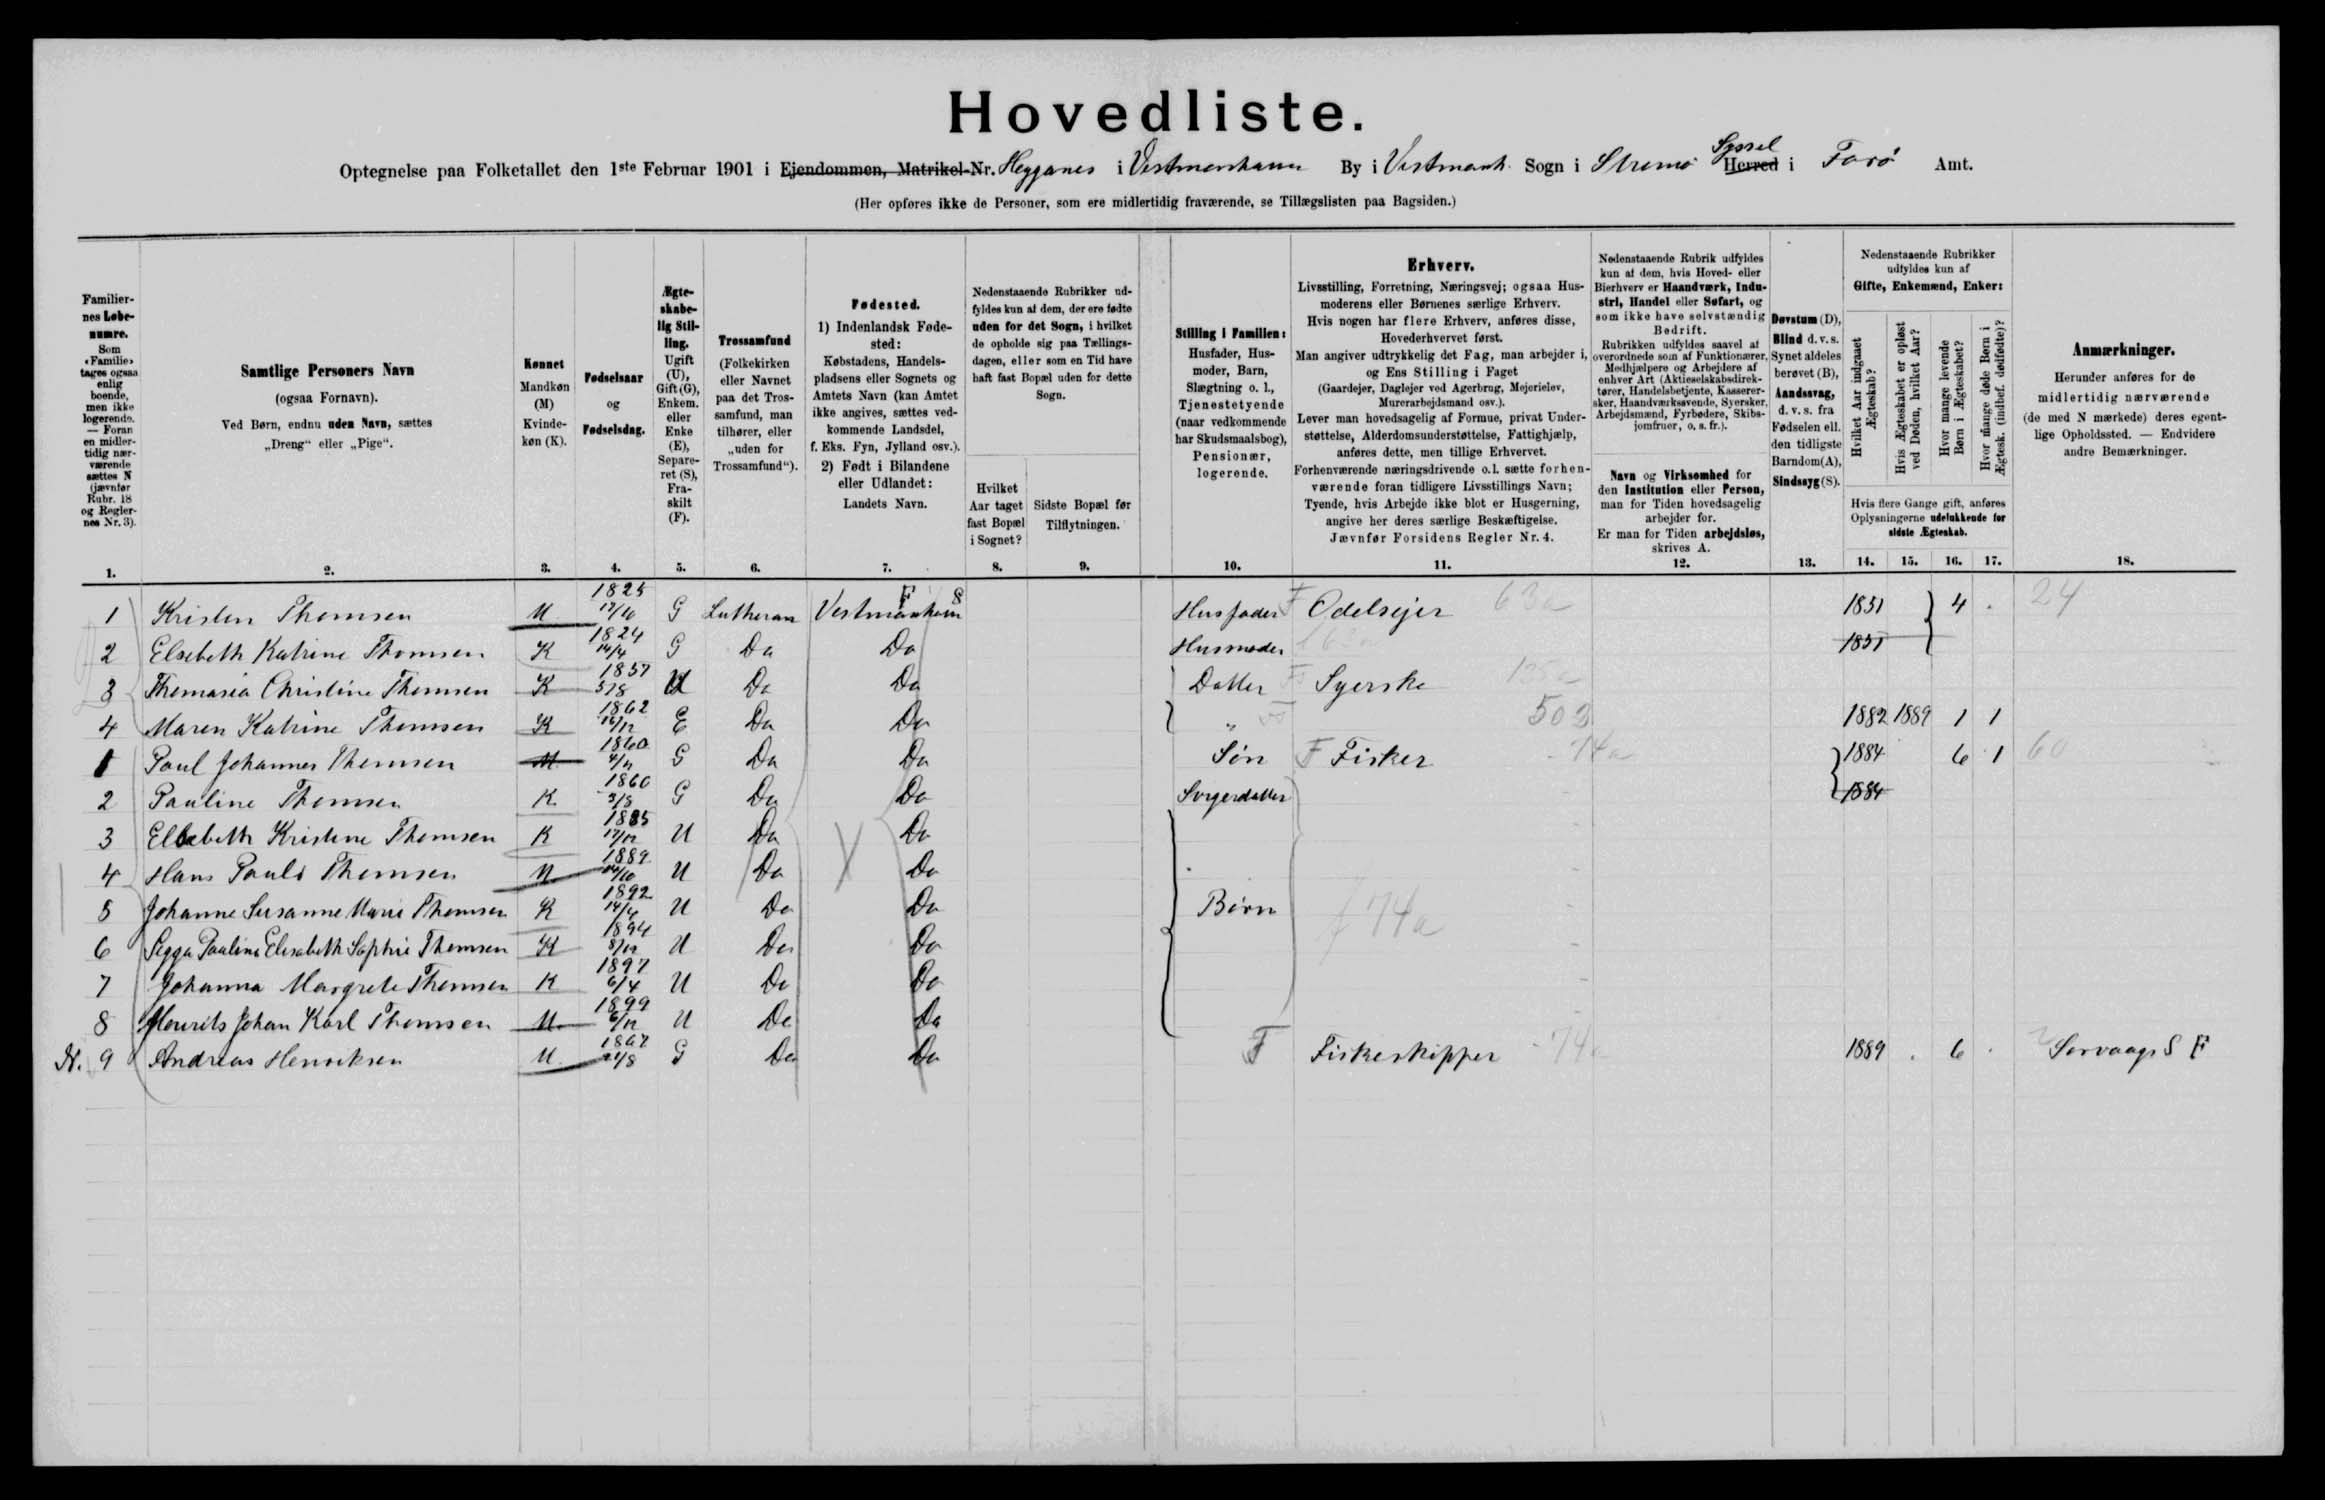 Hovedliste.
Syssel
Optegnelse paa Folketallet den 1ste Februar 1901 i Ejendommen, Matrikel-Nr. Heyganes i Vestmanhavn By i Vestmanh. Sogn i Strømø Herred i Færø Amt.
(Her opføres ikke de Personer, som ere midlertidig fraværende, se Tillægslisten paa Bagsiden.)
Familiernes Løbenumre.
Som «Familie» tages ogsaa enlig boende, men ikke logerende. — Foran en midlertidig nærværende sættes N (jævnfør Rubr. 18 og Reglernes Nr. 3).
Samtlige Personers Navn
(ogsaa Fornavn).
Ved Børn, endnu uden Navn, sættes
„Dreng“ eller „Pige“.
Kønnet
Mandkøn (M)
Kvindekøn (K).
Fødselsaar
og
Fødselsdag.
Ægteskabelig Stilling.
Ugift (U), Gift (G), Enkem. eller Enke (E), Separeret (S), Fraskilt (F).
Trossamfund
(Folkekirken eller Navnet paa det Trossamfund, man tilhører, eller „uden for Trossamfund“).
Fødested.
1) Indenlandsk Fødested:
Købstadens, Handelspladsens eller Sognets og Amtets Navn (kan Amtet ikke angives, sættes vedkommende Landsdel, f. Eks. Fyn, Jylland osv.).
2) Født i Bilandene eller Udlandet:
Landets Navn.
Nedenstaaende Rubrikker udfyldes kun af dem, der ere fødte uden for det Sogn, i hvilket de opholde sig paa Tællingsdagen, eller som en Tid have haft fast Bopæl uden for dette Sogn.
Hvilket Aar taget fast Bopæl i Sognet?
Sidste Bopæl før Tilflytningen.
Stilling i Familien:
Husfader, Husmoder, Barn, Slægtning o. l., Tjenestetyende (naar vedkommende har Skudsmaalsbog), Pensionær, logerende.
Erhverv.
Livsstilling, Forretning, Næringsvej; ogsaa Husmoderens eller Børnenes særlige Erhverv.
Hvis nogen har flere Erhverv, anføres disse, Hovederhvervet først.
Man angiver udtrykkelig det Fag, man arbejder i, og Ens Stilling i Faget
(Gaardejer, Daglejer ved Agerbrug, Mejerielev, Murerarbejdsmand osv.).
Lever man hovedsagelig af Formue, privat Understøttelse, Alderdomsunderstøttelse, Fattighjælp, anføres dette, men tillige Erhvervet.
Forhenværende næringsdrivende o. l. sætte forhenværende foran tidligere Livsstillings Navn;
Tyende, hvis Arbejde ikke blot er Husgerning, angive her deres særlige Beskæftigelse.
Jævnfør Forsidens Regler Nr. 4.
Nedenstaaende Rubrik udfyldes kun af dem, hvis Hoved- eller Bierhverv er Haandværk, Industri, Handel eller Søfart, og som ikke have selvstændig Bedrift.
Rubrikken udfyldes saavel af overordnede som af Funktionærer, Medhjælpere og Arbejdere af enhver Art (Aktieselskabsdirektører, Handelsbetjente, Kasserersker, Haandværkssvende, Syersker, Arbejdsmænd, Fyrbødere, Skibsjomfruer, o. s. fr.).
Navn og Virksomhed for den Institution eller Person, man for Tiden hovedsagelig arbejder for.
Er man for Tiden arbejdsløs, skrives A.
Døvstum (D), Blind d. v. s. Synet aldeles berøvet (B), Aandssvag, d. v. s. fra Fødselen ell. den tidligste Barndom (A), Sindssyg (S).
Nedenstaaende Rubrikker udfyldes kun af
Gifte, Enkemænd, Enker:
Hvilket Aar indgaaet Ægteskab?
Hvis Ægteskabet er opløst ved Døden, hvilket Aar?
Hvor mange levende Børn i Ægteskabet?
Hvor mange døde Børn i Ægtesk. (indbef. dødfødte)?
Hvis flere Gange gift, anføres Oplysningerne udelukkende for sidste Ægteskab.
Anmærkninger.
Herunder anføres for de midlertidig nærværende (de med N mærkede) deres egentlige Opholdssted. — Endvidere andre Bemærkninger.
1. 2. 3. 4. 5. 6. 7. 8. 9. 10. 11. 12. 13. 14. 15. 16. 17. 18.
F 8
1 Kristen Thomsen M 1825 17/10 G Lutheran Vestmanhavn Husfader F Odelsejer 63a 1851 4 . 24
2 Elsebeth Katrine Thomsen K 1824 14/4 G Do Do Husmoder 1851
3 Thomasia Christine Thomsen K 1857 5/8 U Do Do Datter Syerske 135a
4 Maren Katrine Thomsen K 1862 16/12 E Do Do „ 503 1882 1889 1 1
1 Poul Johannes Thomsen M 1860 4/11 G Do Do Søn F Fisker 74a 1884 6 1 60
2 Pauline Thomsen K. 1860 3/8 G Do Do Svigerdatter 1884
3 Elsebeth Kristine Thomsen K 1885 17/12 U Do Do
4 Hans Pauli Thomsen M 1889 14/10 U Do Do
5 Johanne Susanne Marie Thomsen K 1892 14/4 U Do Do Børn f 74a
6 Sigga Pauline Elisabeth Sophie Thomsen K 1894 8/12 U Do Do
7 Johanna Margrete Thomsen K 1897 6/4 U Do Do
8 Mourits Johan Karl Thomsen M. 1899 6/12 U Do Do
N. 9 Andreas Henriksen M. 1867 21/8 G Do Do F Fiskeskipper 74a 1889 . 6 . Sørvaags S F